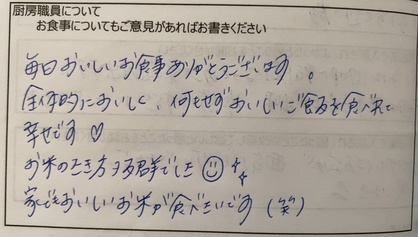 厨房職員について
お食事についてもご意見があればお書きください
毎日おいしいお食事ありがとうございます。
全体的においしく、何もせずおいしいご飯を食べれて
幸せです♡
お米のたき方了群でした☺
家でもおいしいお米が食べたいです(笑)